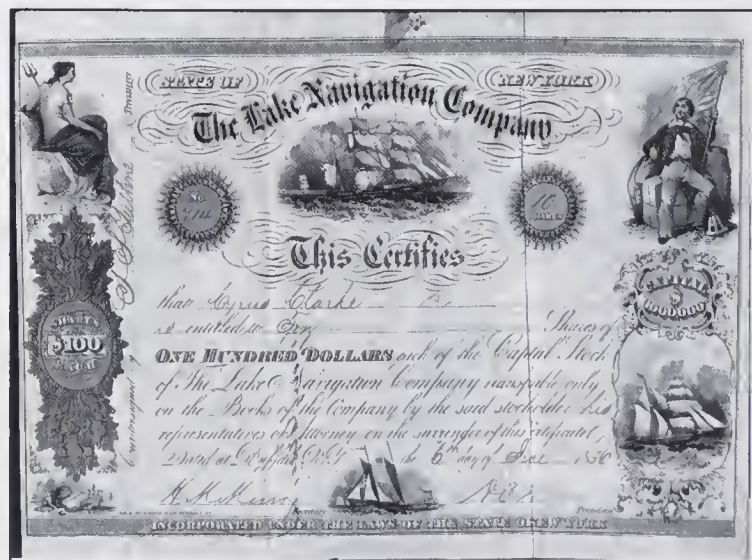 STATE OF NEW YORK
The Lake Navigation Company
No.
10
SHARES
This Certifies
that Cyrus Clarke
is entitled to Ten Shares of
ONE HUNDRED DOLLARS each of the Capital Stock
of The Lake Navigation Company transferable only
on the Books of the Company by the said stockholder his
representatives or Attorney on the surrender of this certificate,
Dated at Buffalo N.Y. the 6th day of Dec 1856
Secretary
President
INCORPORATED UNDER THE LAWS OF THE STATE OF NEW YORK
SHARES
$100
EACH
Countersigned by
Treasurer
CAPITAL
$